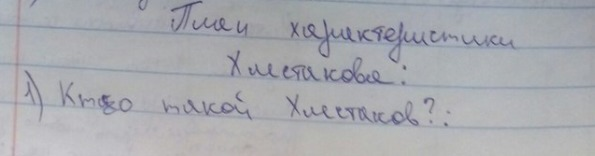 План характеристики
Хлестакова:
1) Кто такой Хлестаков?: